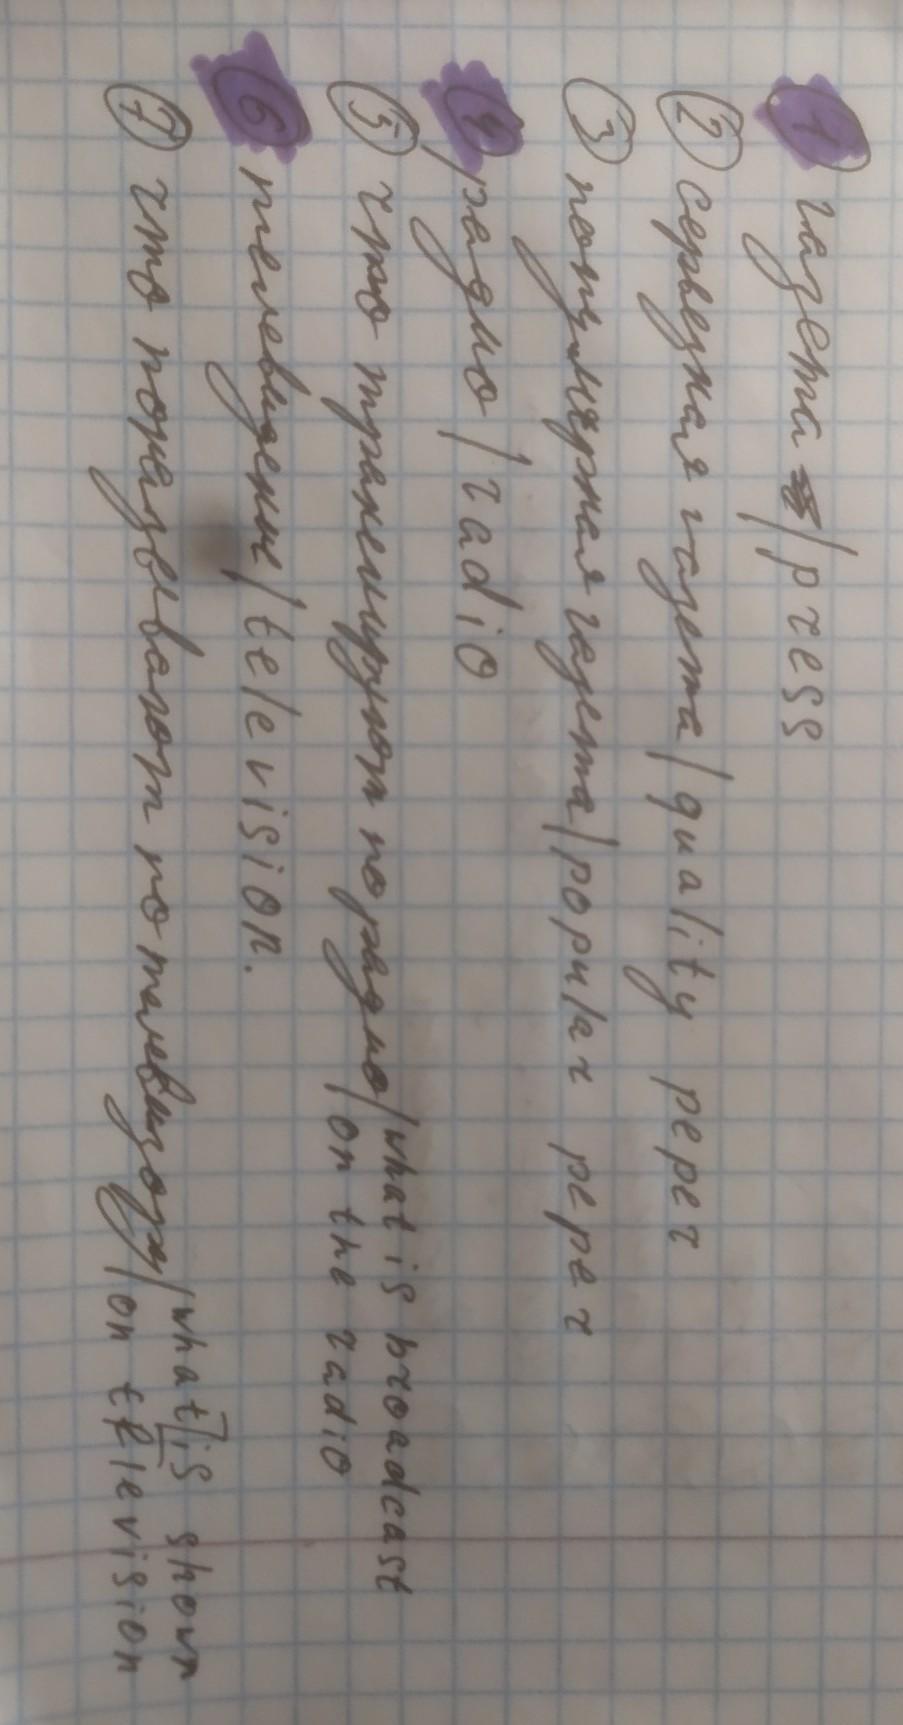 1 газета /press
2 серьезная газета /quality peper
3 популярная газета /popular peper
4 радио /radio
5 что транслируют по радио /what is broadcast
/on the radio
6 телевидение /television.
7 что показывают по телевизору /what is shown
/on television